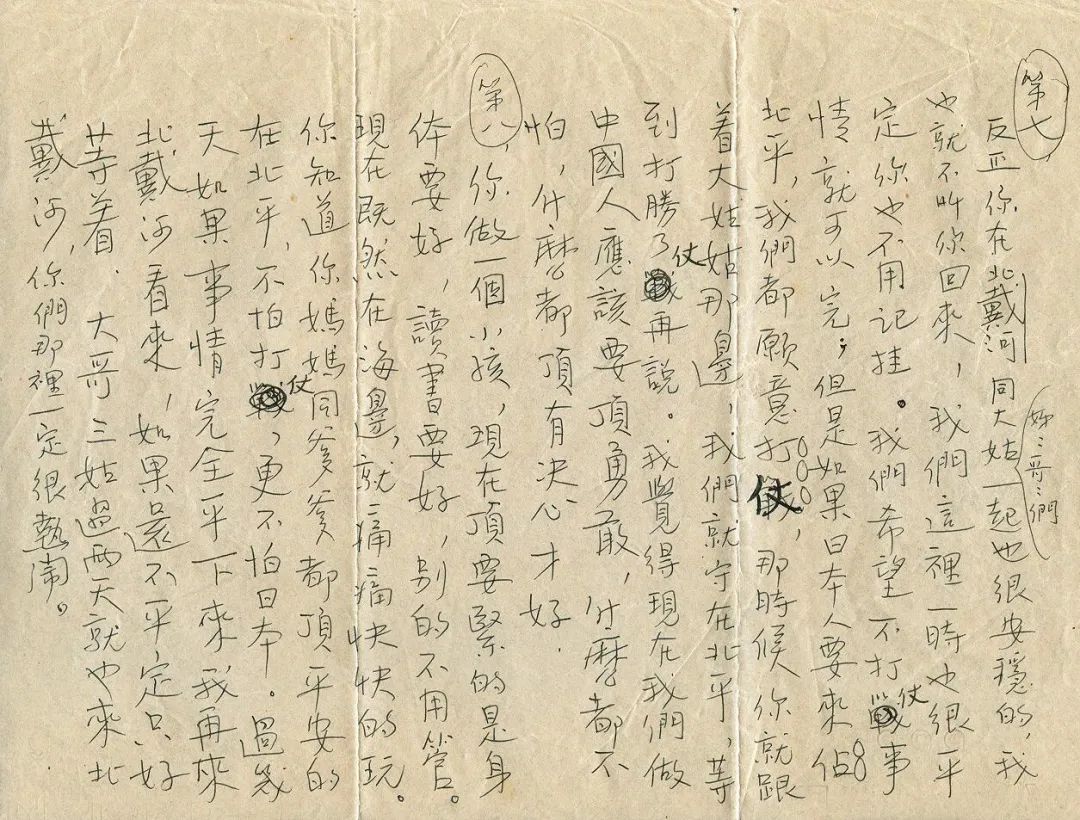 第七，
反正你在北戴河同大姑姐姐哥哥們一起也很安穩的，我
也就不叫你回來，我們這裡一時也很平
定你也不用记挂。我們希望不打仗事
情就可以完；但是如果日本人要来佔
北平，我們都願意打仗，那時候你就跟
着大姑姑那邊，我們就守在北平，等
到打勝了仗再説。我覺得現在我們做
中國人應該要頂勇敢，什麽都不
怕，什麽都頂有决心才好．
第八，你做一個小孩，現在頂要緊的是身
体要好，讀書要好，别的不用管。
現在既然在海邊，就痛痛快快的玩。
你知道你媽媽同爹爹都頂平安的
在北平，不怕打仗，更不怕日本。過幾
天如果事情完全平下来我再來
北戴河看你，如果還不平定只好
等着．大哥三姑過两天就也来北
戴河，你們那裡一定很熱鬧。